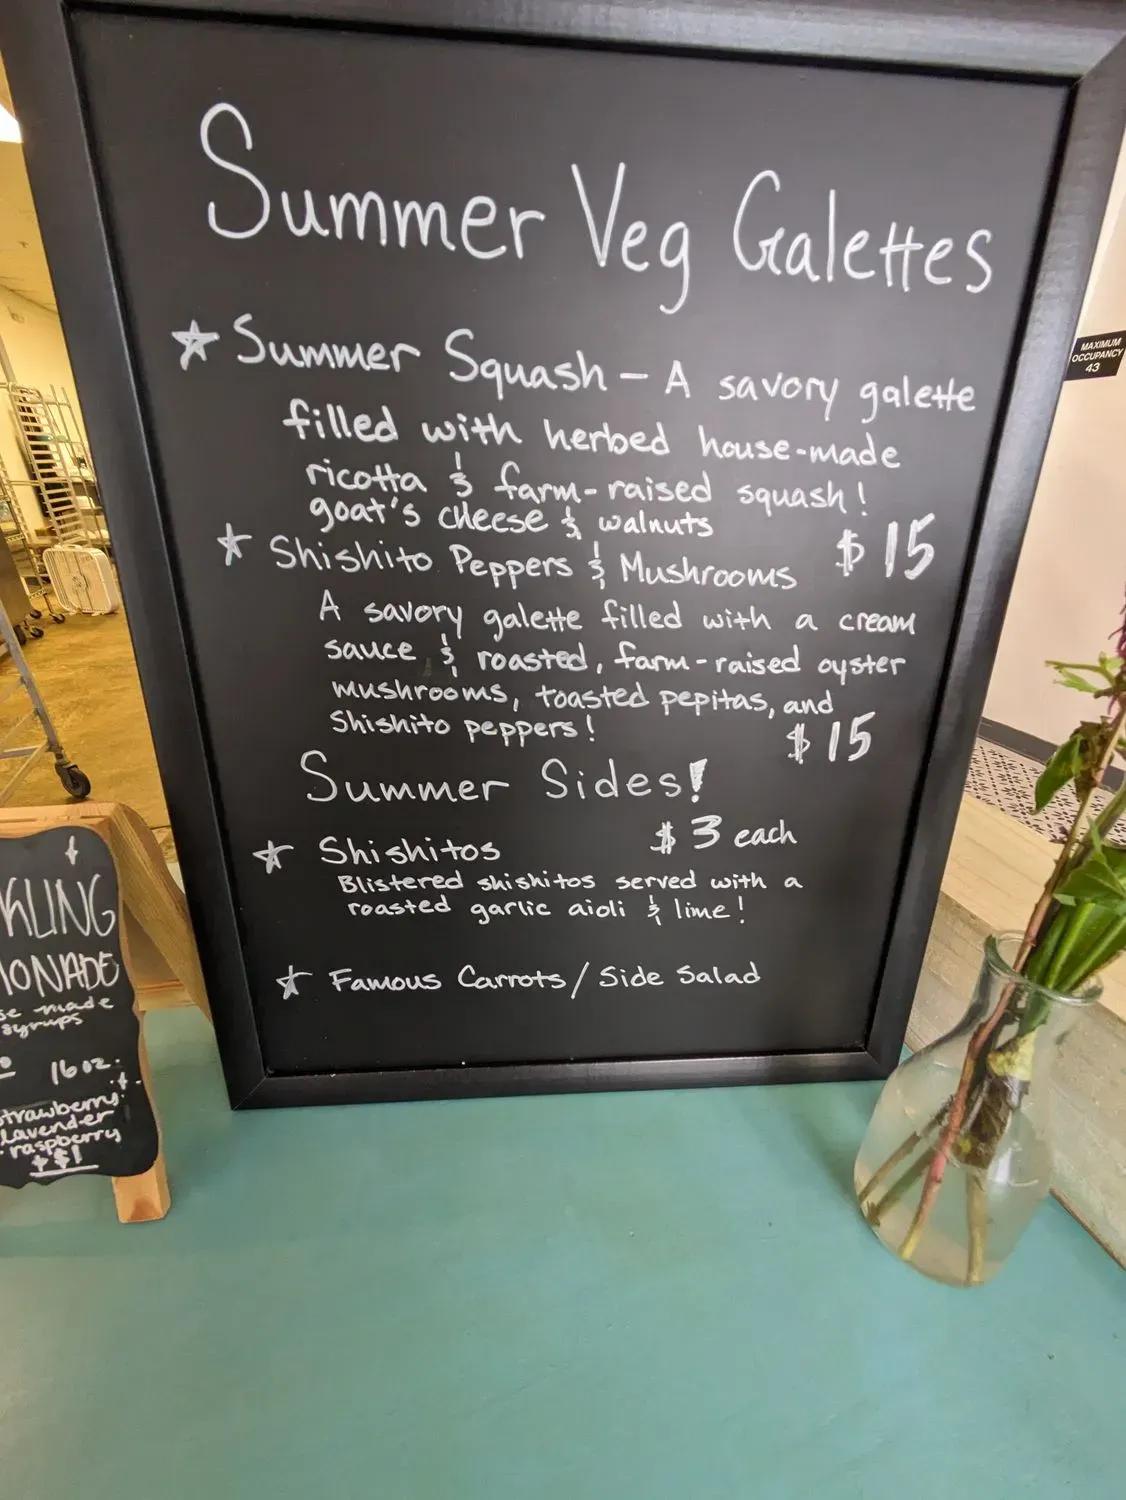 Summer Veg Galettes
★ Summer Squash – A savory galette
filled with herbed house-made
ricotta & farm-raised squash!
goat's cheese & walnuts
$15
★ Shishito Peppers & Mushrooms
A savory galette filled with a cream
sauce & roasted, farm-raised oyster
mushrooms, toasted pepitas, and
Shishito peppers!
$15
Summer Sides!
$3 each
★ Shishitos
Blistered shishitos served with a
roasted garlic aioli & lime!
★ Famous Carrots/Side Salad
MAXIMUM
OCCUPANCY
43
made
syrups
16oz.
strawberry
lavender
raspberry
+$1